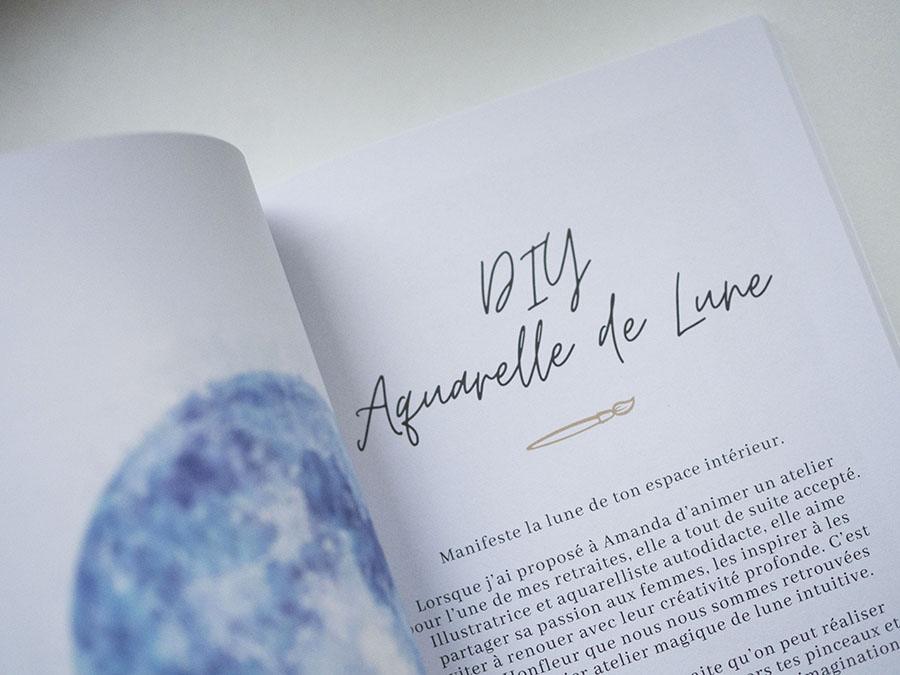 DIY
Aquarelle de Lune
Manifeste la lune de ton espace intérieur.
Lorsque j'ai proposé à Amanda d'animer un atelier
pour l'une de mes retraites, elle a tout de suite accepté.
Illustratrice et aquarelliste autodidacte, elle aime
partager sa passion aux femmes, les inspirer à les
à renouer avec leur créativité profonde. C'est
Honfleur que nous nous sommes retrouvées
atelier magique de lune intuitive.
qu'on peut réaliser
tes pinceaux et
imagination